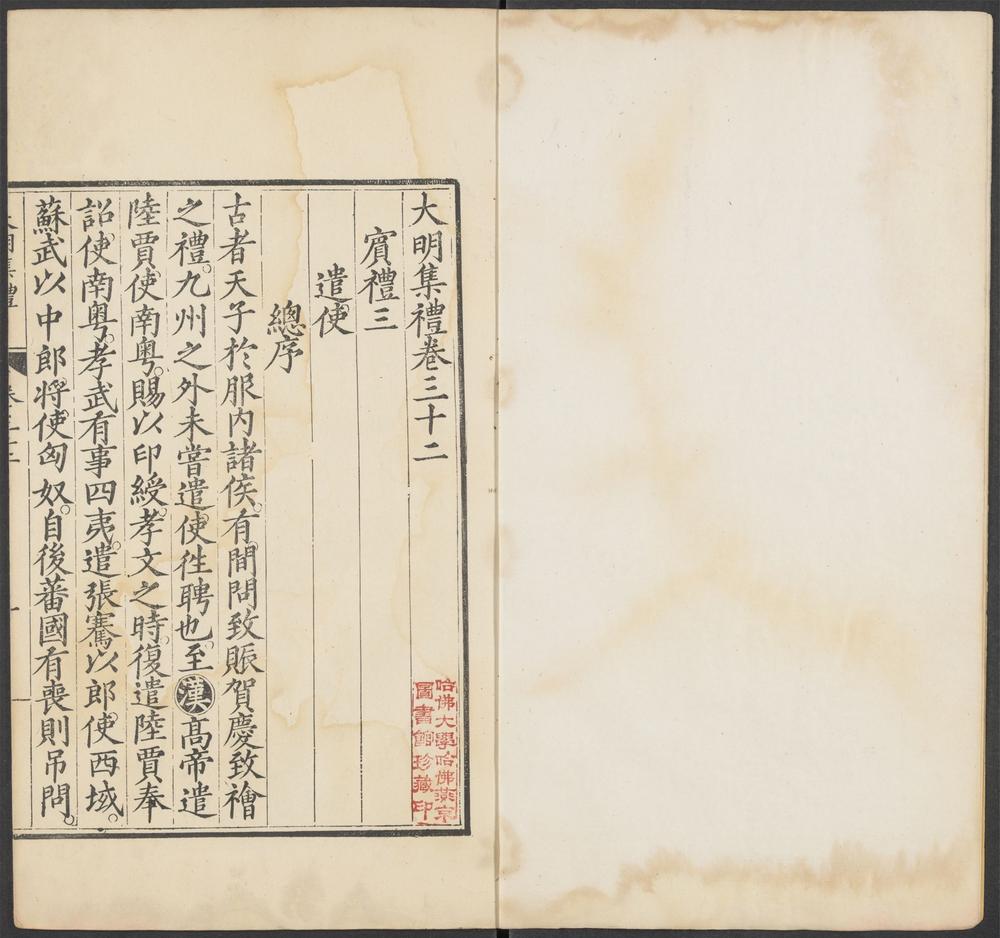 大明集禮卷三十二
賓禮三
遣使
總序
古者天子於服内諸侯。有間問致賑賀慶致襘
之禮。九州之外未嘗遣使徃聘也。至漢高帝遣
陸賈使南粤。賜以印綬。孝文之時。復遣陸賈奉
詔使南粤。孝武有事四夷。遣張騫以郎使西域。
蘇武以中郎將使匈奴。自後蕃國有喪則吊問。
哈佛大學哈佛燕京
圖書館珍藏印